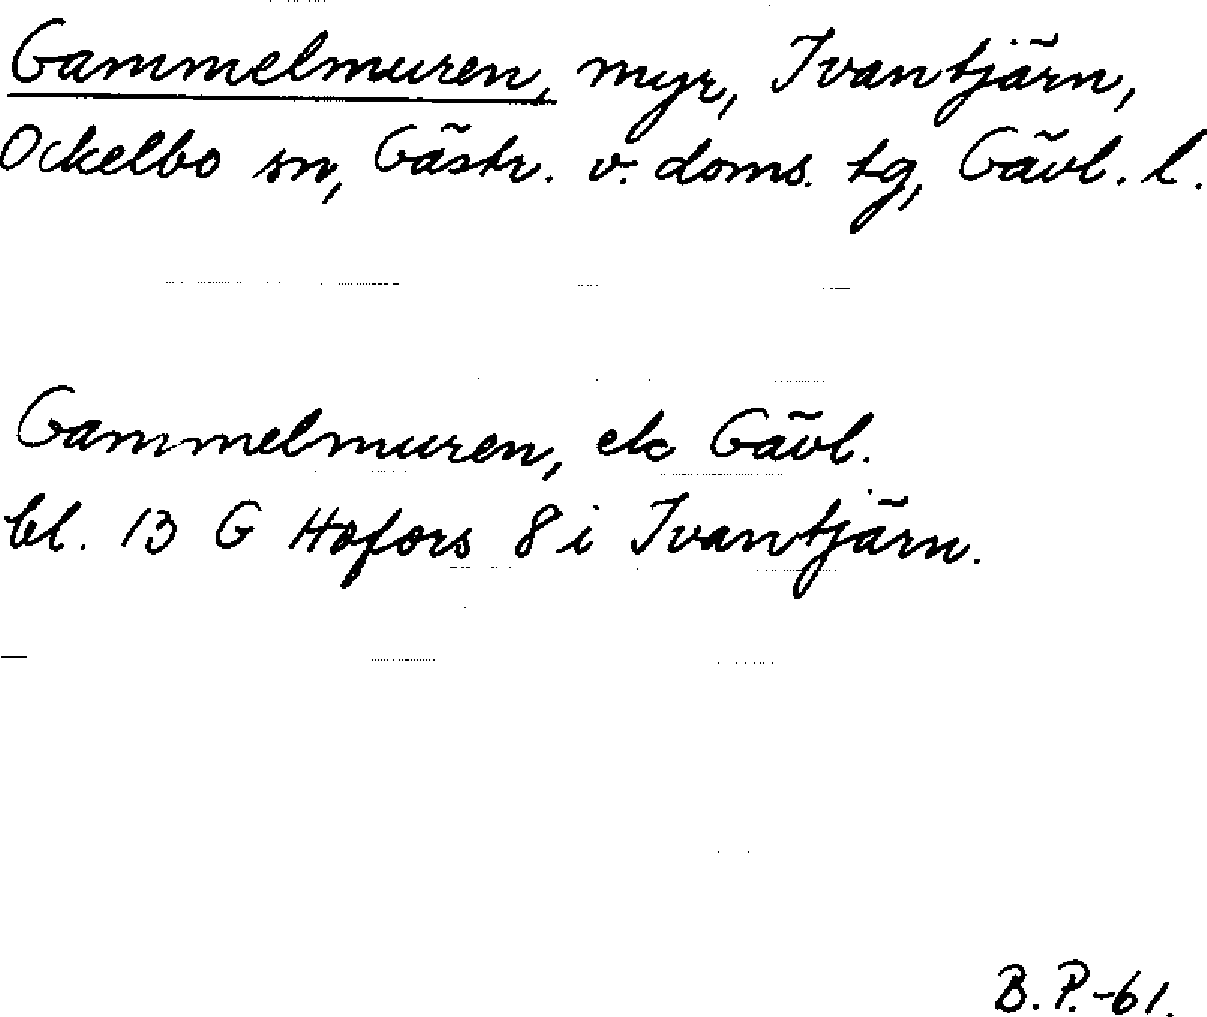 Gammelmuren, myr, Ivantjärn,
Ockelbo sn, Gästr. v. doms. tg, Gävl. l.
Gammelmuren, ek Gävl.
bl. 13 G Hofors 8 i Ivantjärn.
B.P.-61.